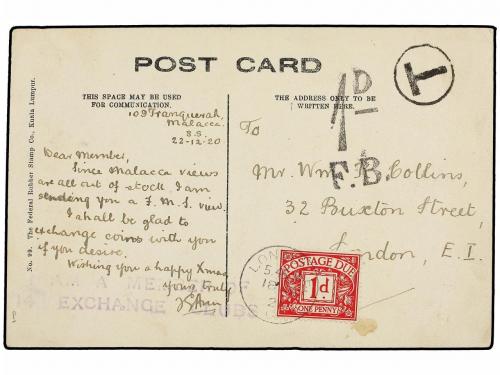 POST CARD
THIS SPACE MAY BE USED
FOR COMMUNICATION.
THE ADDRESS ONLY TO BE
WRITTEN HERE.
109 Tranquerah,
Malacca.
S.S.
22-12-20
Dear Member,
Since Malacca views
are all out of stock, I am
sending you a F.M.S. view.
I shall be glad to
exchange coins with you
if you desire.
Wishing you a happy Xmas
Yours truly
I AM A MEMBER OF
14 EXCHANGE CLUBS
No. 99. The Federal Rubber Stamp Co., Kuala Lumpur.
T
1D
F.B.
To
Mr. Wm. Collins,
32 Buxton Street,
London, E.1.
LON
POSTAGE DUE
1d
ONE PENNY